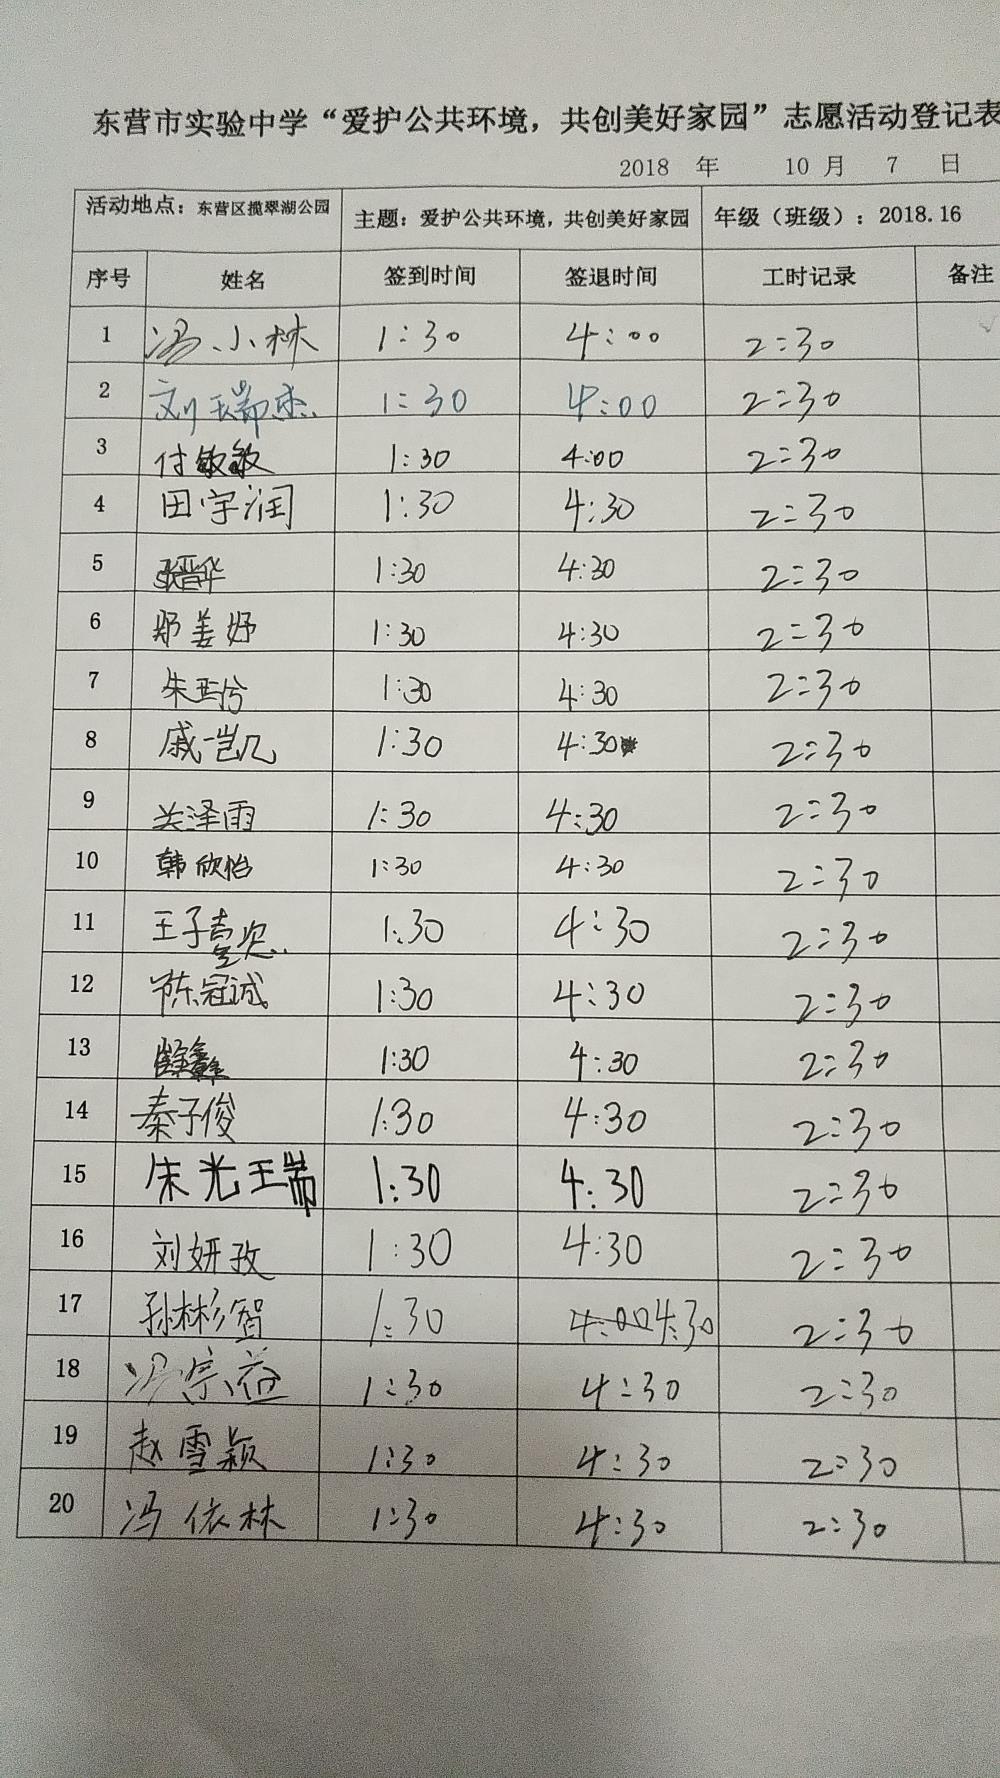 东营市实验中学“爱护公共环境，共创美好家园”志愿活动登记表
2018 年 10 月 7 日
活动地点：东营区揽翠湖公园 主题：爱护公共环境，共创美好家园 年级（班级）：2018.16
序号 姓名 签到时间 签退时间 工时记录 备注
1 冯小林 1:30 4:00 2:30
2 刘瑞杰 1:30 4:00 2:30
3 付敏敏 1:30 4:00 2:30
4 田宇润 1:30 4:30 2:30
5 1:30 4:30 2:30
6 郑姜妤 1:30 4:30 2:30
7 朱玉兮 1:30 4:30 2:30
8 戚凯凡 1:30 4:30 2:30
9 关泽雨 1:30 4:30 2:30
10 韩欣怡 1:30 4:30 2:30
11 王子壹 1:30 4:30 2:30
12 陈冠诚 1:30 4:30 2:30
13 1:30 4:30 2:30
14 秦子俊 1:30 4:30 2:30
15 朱光瑞 1:30 4:30 2:30
16 刘妍孜 1:30 4:30 2:30
17 孙彬智 1:30 4:00 4:30 2:30
18 冯宗益 1:30 4:30 2:30
19 赵雪颖 1:30 4:30 2:30
20 冯依林 1:30 4:30 2:30